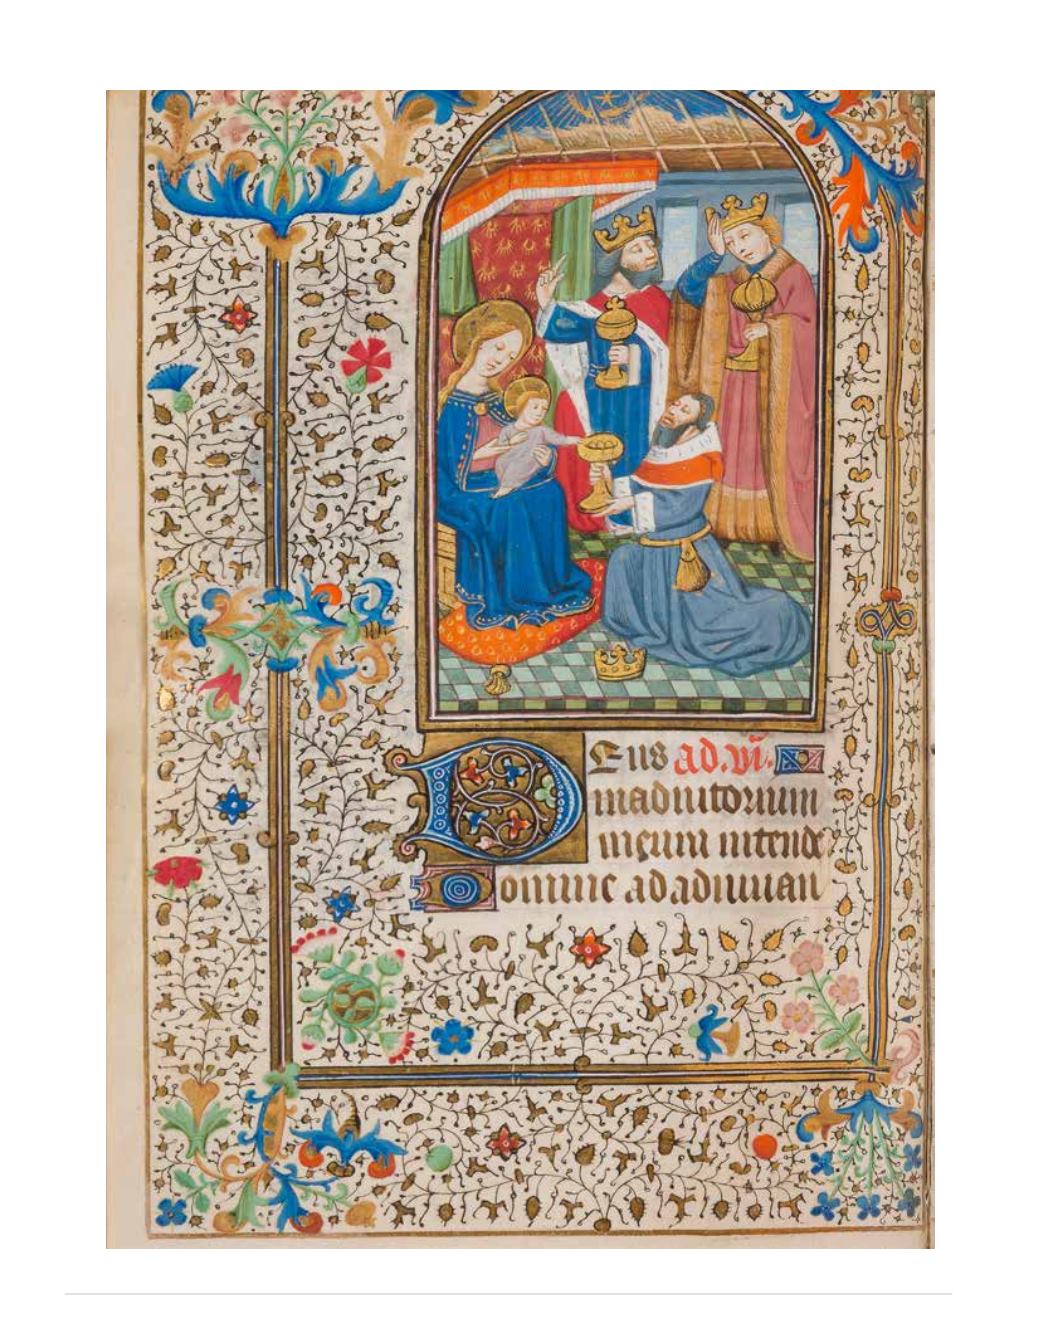 Deus ad. vi.
in adiutorium
meum intende
Domine ad adiuuan